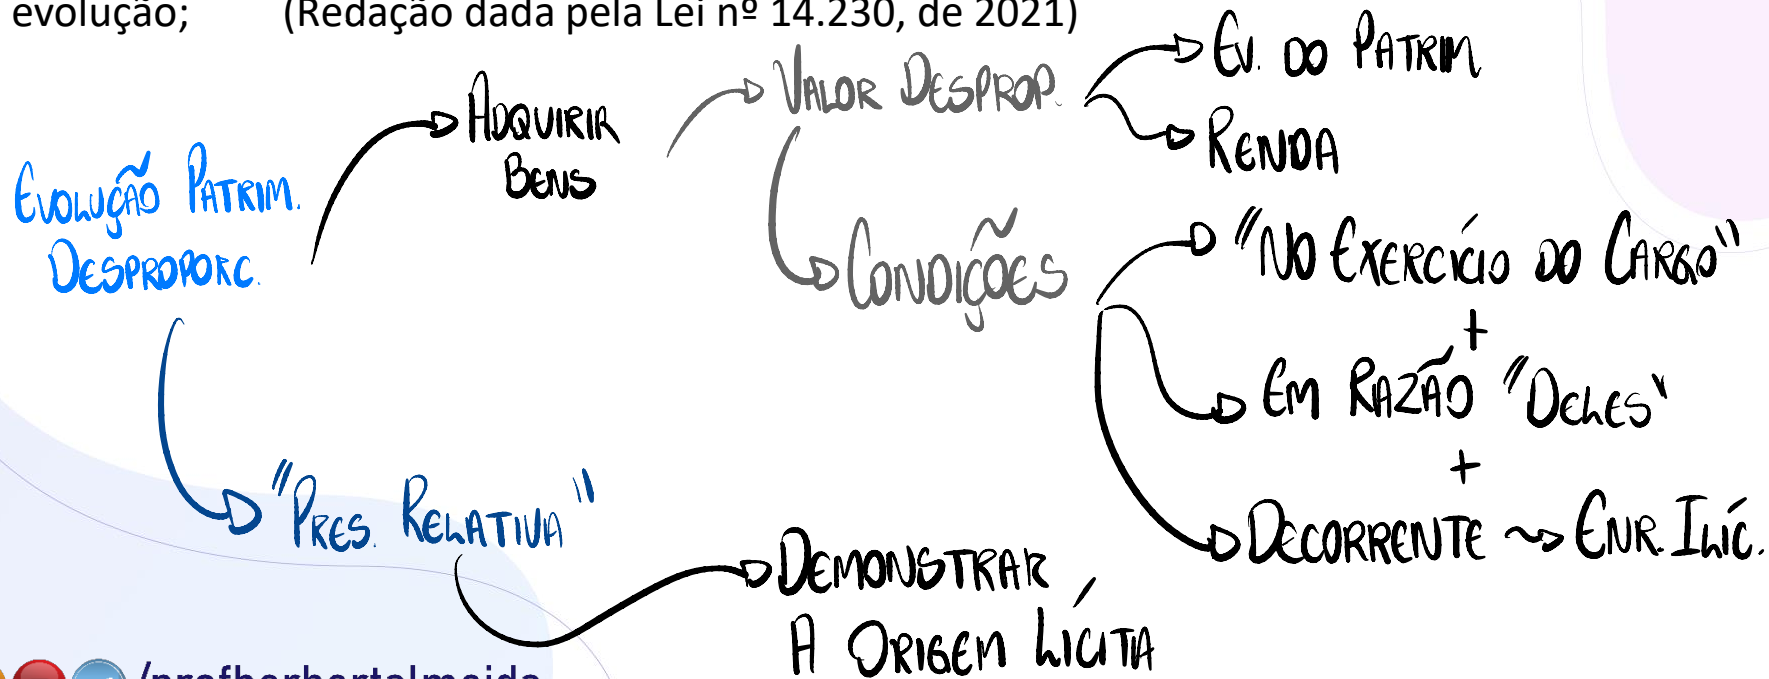 evolução; (Redação dada pela Lei nº 14.230, de 2021)
EVOLUÇÃO PATRIM.
DESPROPORC.
ADQUIRIR
BENS
VALOR DESPROP.
EV. DO PATRIM
RENDA
CONDIÇÕES
"NO EXERCÍCIO DO CARGO"
+
EM RAZÃO "DELES"
+
DECORRENTE ~> ENR. ILÍC.
"PRES. RELATIVA"
DEMONSTRAR
A ORIGEM LÍCITA
/profherbertalmeida